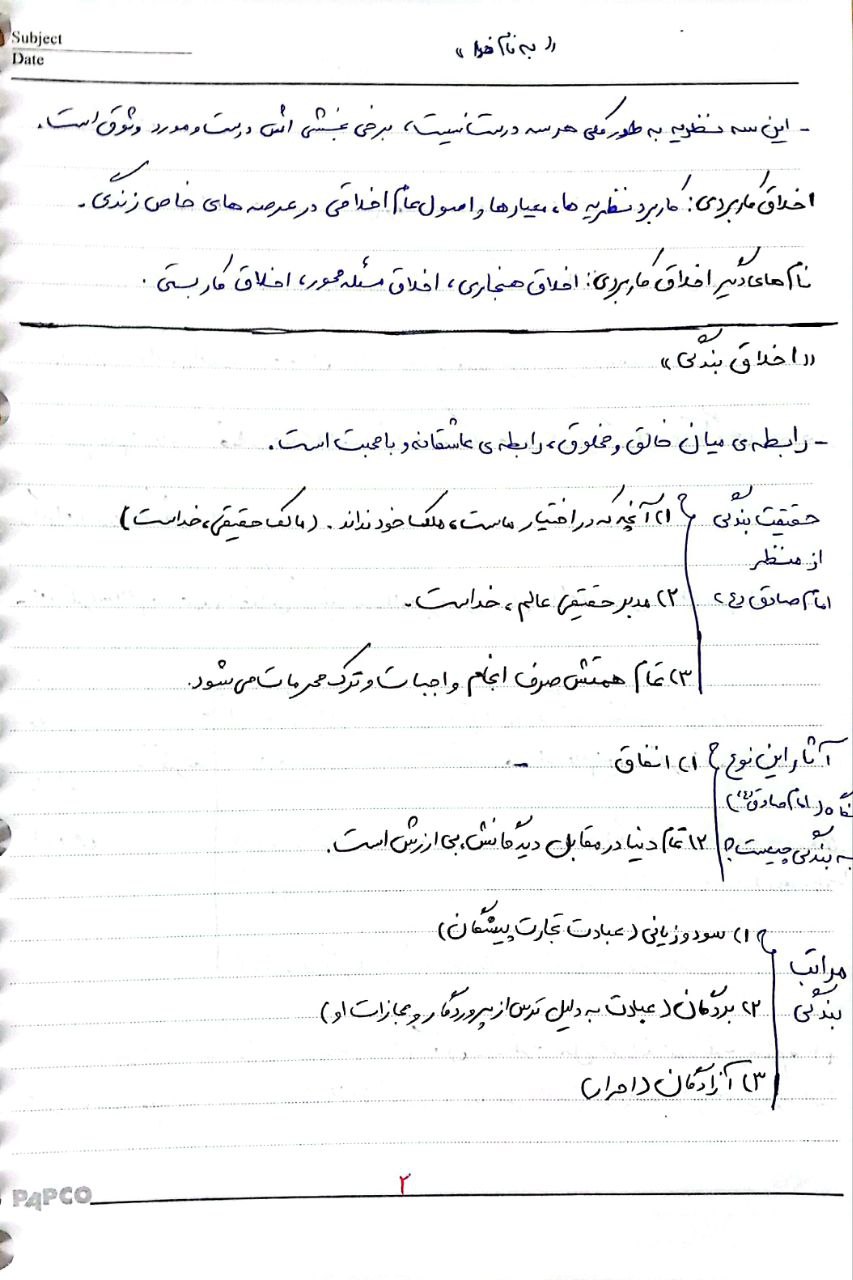 Subject
Date
«به نام خدا»
- این سه نظریه به طور کلی هر سه درست نیست، برخی بخشی اش درست و مورد وثوق است.
اخلاق کاربردی: کاربرد نظریه ها، معیارها و اصول عام اخلاقی در عرصه های خاص زندگی.
نام های دیگر اخلاق کاربردی: اخلاق هنجاری، اخلاق مسئله محور، اخلاق کاربستی.
«اخلاق بندگی»
- رابطه ی میان خالق و مخلوق، رابطه ی عاشقانه و با محبت است.
حقیقت بندگی از منظر امام صادق (ع)
۱) آنچه که در اختیار ماست، ملک خود نداند. (مالک حقیقی، خداست)
۲) مدبر حقیقی عالم، خداست.
۳) تمام همتش صرف انجام واجبات و ترک محرمات می شود.
آثار این نوع نگاه (امام صادق (ع)) به بندگی چیست؟
۱) انفاق -
۲) تمام دنیا در مقابل دیدگانش، بی ارزش است.
مراتب بندگی
۱) سود و زیانی (عبادت تجارت پیشگان)
۲) بردگان (عبادت به دلیل ترس از پروردگار و مجازات او)
۳) آزادگان (احرار)
۲
PAPCO